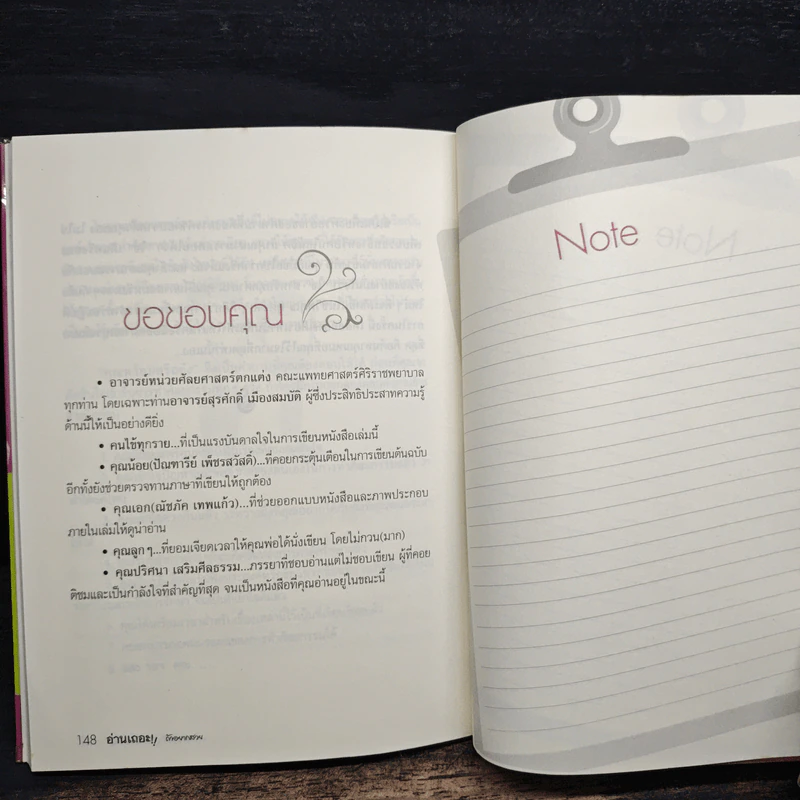 ขอขอบคุณ
• อาจารย์หน่วยศัลยศาสตร์ตกแต่ง คณะแพทยศาสตร์ศิริราชพยาบาล
ทุกท่าน โดยเฉพาะท่านอาจารย์สุรศักดิ์ เมืองสมบัติ ผู้ซึ่งประสิทธิประสาทความรู้
ด้านนี้ให้เป็นอย่างดียิ่ง
• คนไข้ทุกราย...ที่เป็นแรงบันดาลใจในการเขียนหนังสือเล่มนี้
• คุณน้อย(ปัณฑารีย์ เพ็ชรสวัสดิ์)...ที่คอยกระตุ้นเตือนในการเขียนต้นฉบับ
อีกทั้งยังช่วยตรวจทานภาษาที่เขียนให้ถูกต้อง
• คุณเอก(ณัชภัค เทพแก้ว)...ที่ช่วยออกแบบหนังสือและภาพประกอบ
ภายในเล่มให้ดูน่าอ่าน
• คุณลูกๆ...ที่ยอมเจียดเวลาให้คุณพ่อได้นั่งเขียน โดยไม่กวน(มาก)
• คุณปริศนา เสริมศีลธรรม...ภรรยาที่ชอบอ่านแต่ไม่ชอบเขียน ผู้ที่คอย
ติชมและเป็นกำลังใจที่สำคัญที่สุด จนเป็นหนังสือที่คุณอ่านอยู่ในขณะนี้
148 อ่านเถอะ!! ถ้าอยากสวย
Note